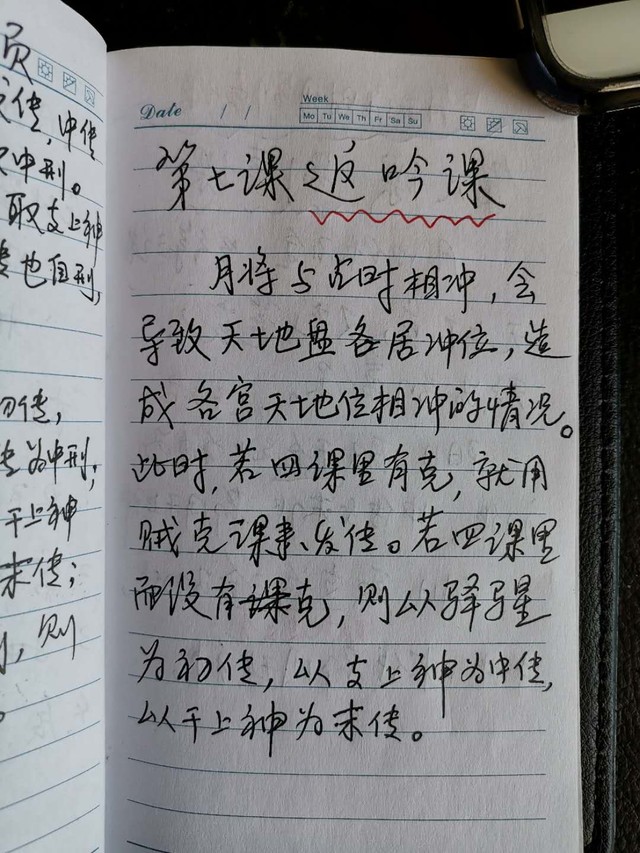 中传
冲刑。
取支上神
也自刑,
初传,
为冲刑;
干上神
末传;
则
Date / /
Week
Mo Tu We Th Fr Sa Su
第七课 返吟课
月将与占时相冲,会
导致天地盘各居冲位,造
成各宫天地位相冲的情况。
此时,若四课里有克,就用
贼克课来发传。若四课里
面没有课克,则以驿星
为初传,以支上神为中传,
以干上神为末传。